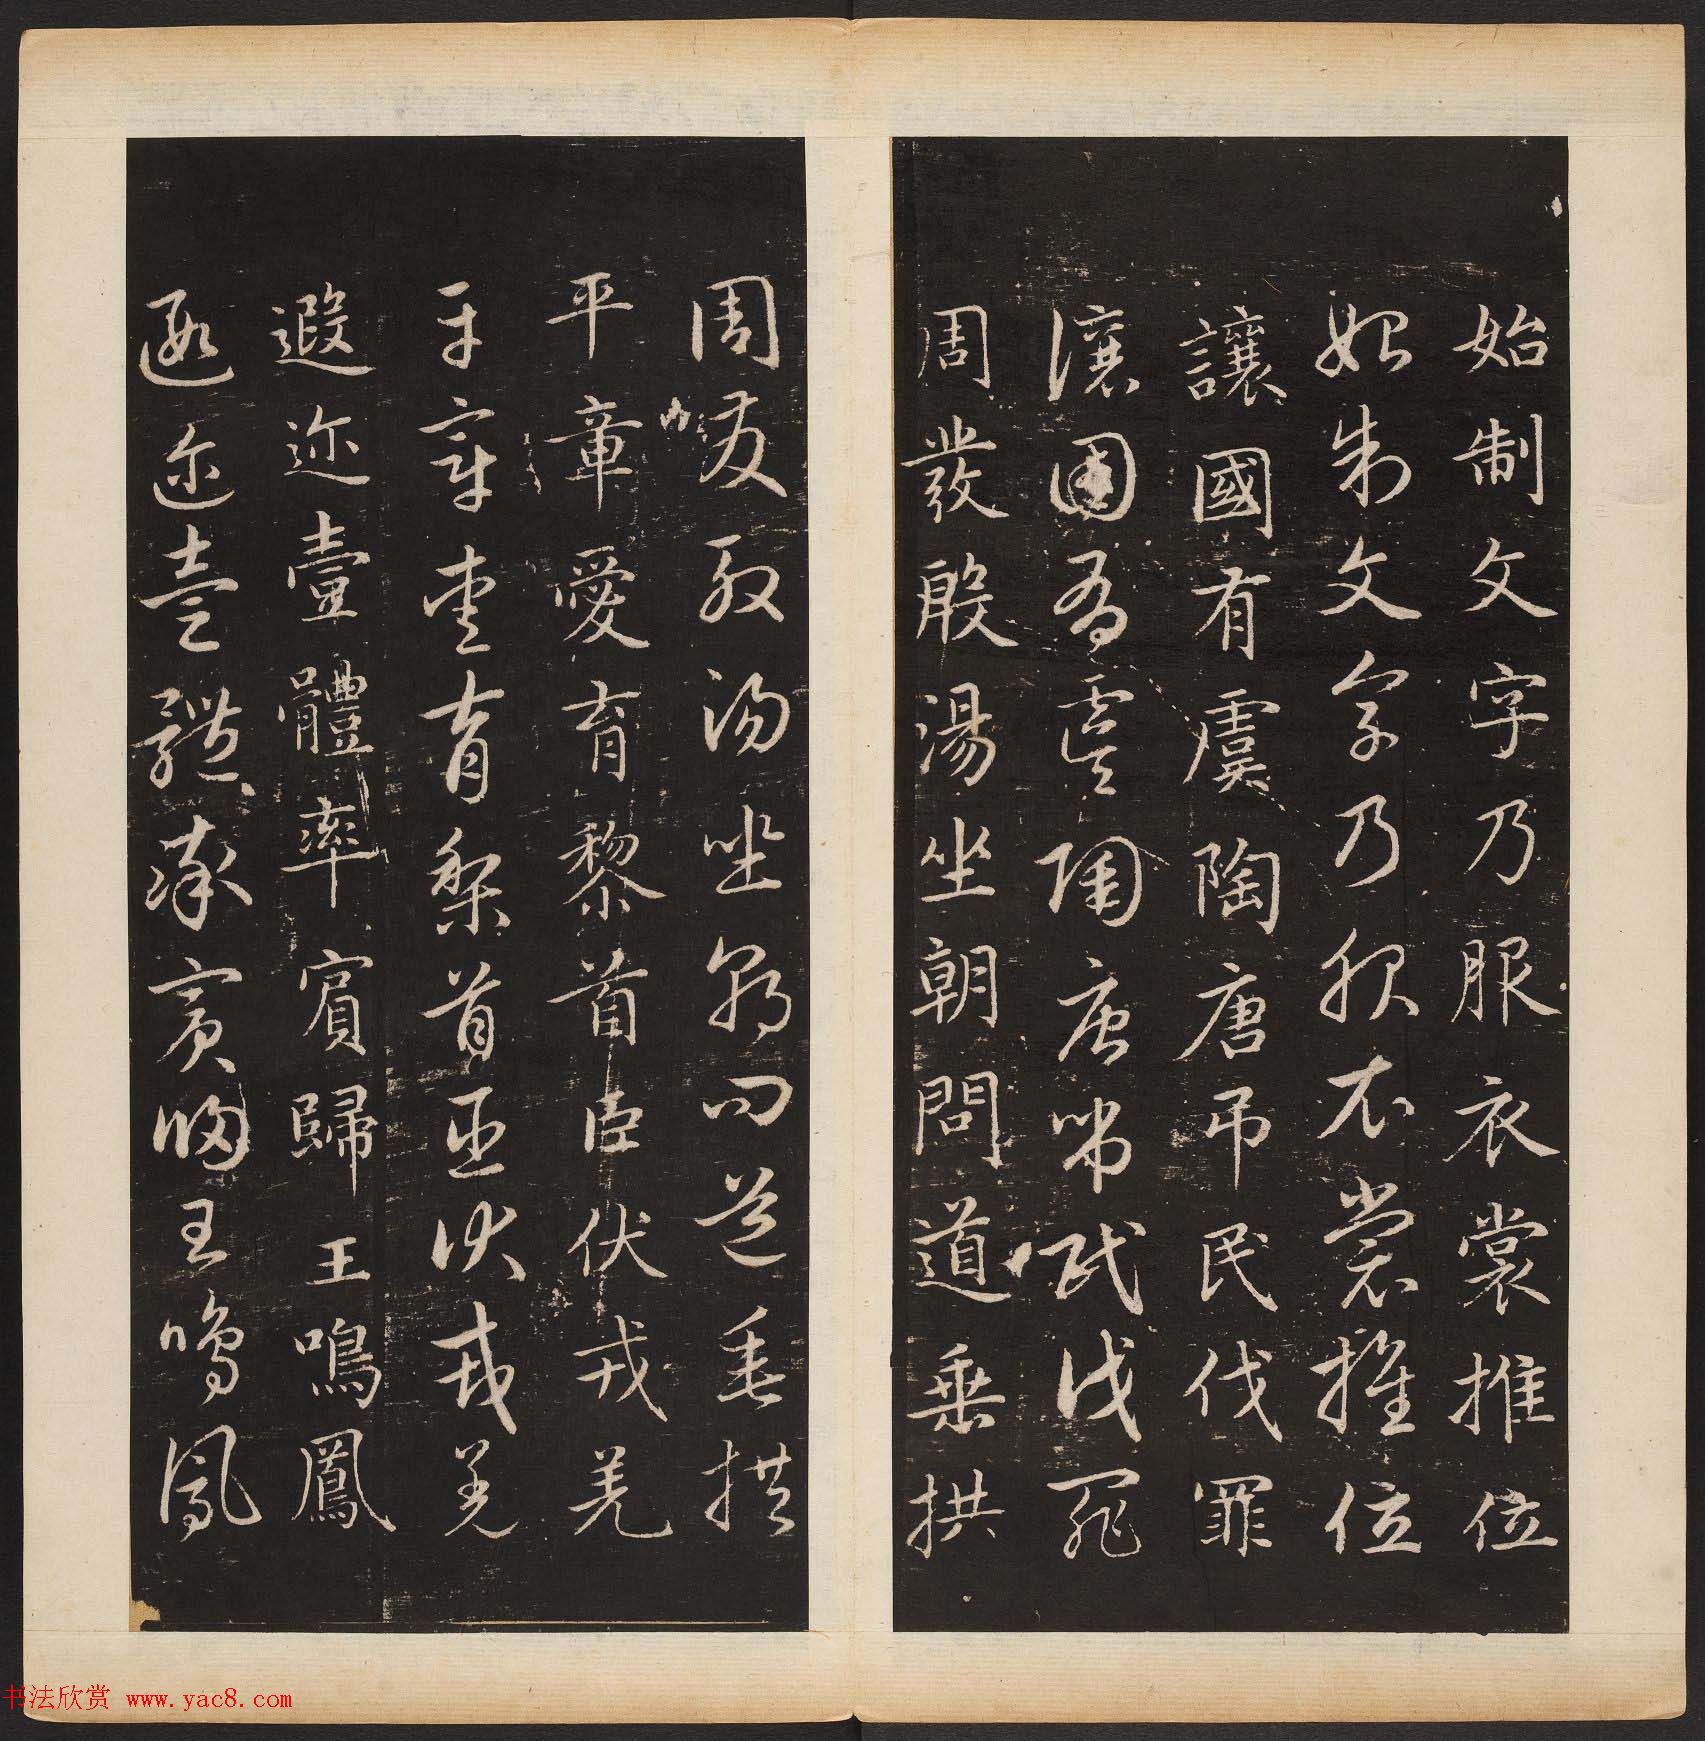 始制文字乃服衣裳推位
始制文字乃服衣裳推位
讓國有虞陶唐弔民伐罪
讓國有虞陶唐弔民伐罪
周發殷湯坐朝問道垂拱
周發殷湯坐朝問道垂拱
平章愛育黎首臣伏戎羌
平章愛育黎首臣伏戎羌
遐迩壹體率賓歸王鳴鳳
遐迩壹體率賓歸王鳴鳳
书法欣赏 www.yac8.com